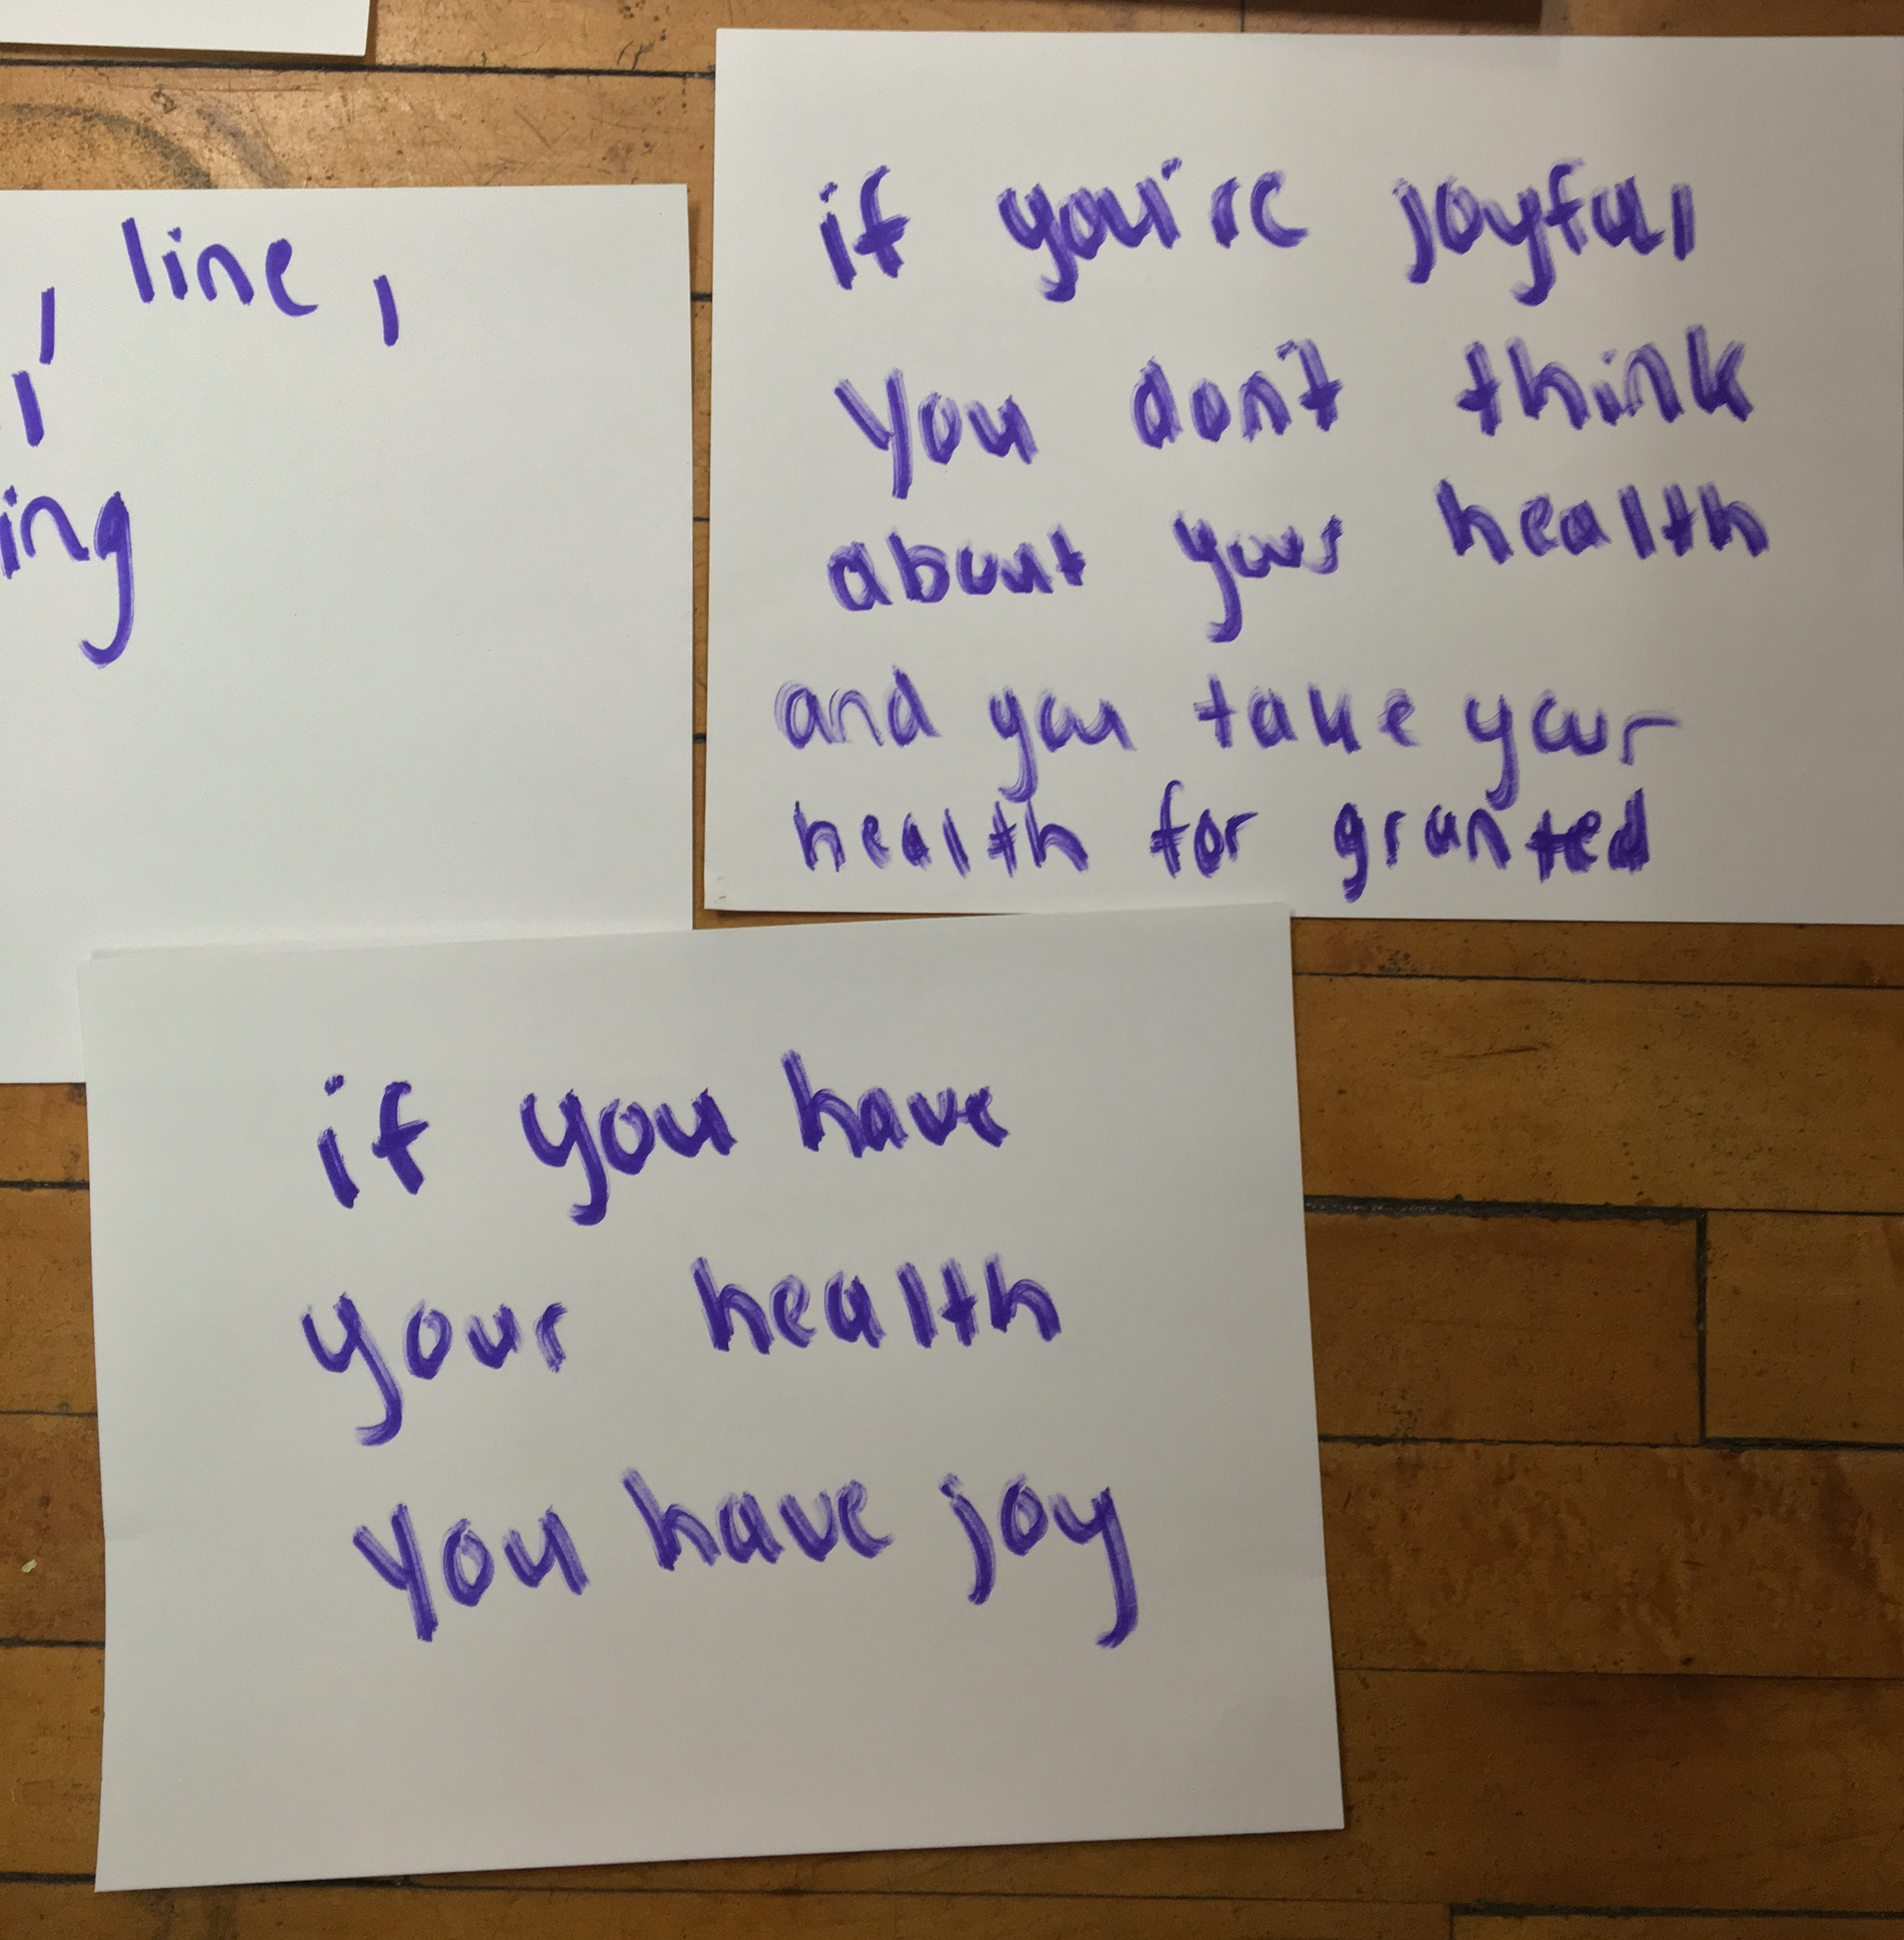 , line,
ing
if you're joyful
you don't think
about your health
and you take your
health for granted
if you have
your health
you have joy